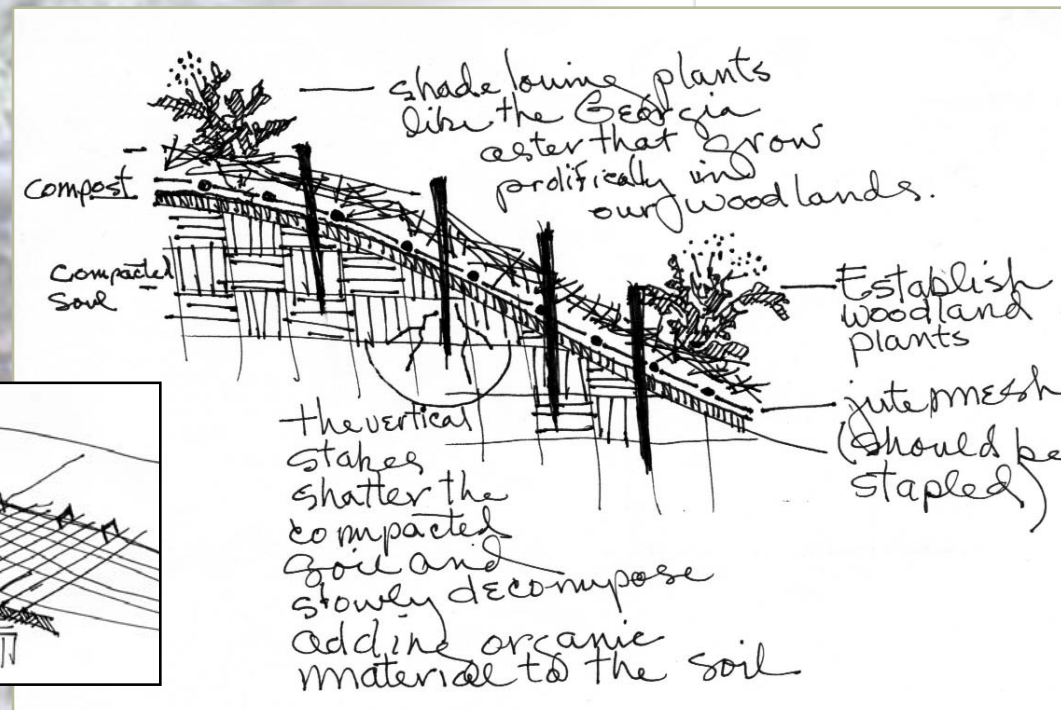 shade loving plants
like the Georgia
aster that grow
prolifically in
our woodlands.
compost
compacted
soil
Establish
woodland
plants
jute mesh
(should be
stapled)
the vertical
stakes
shatter the
compacted
soil and
slowly decompose
adding organic
material to the soil